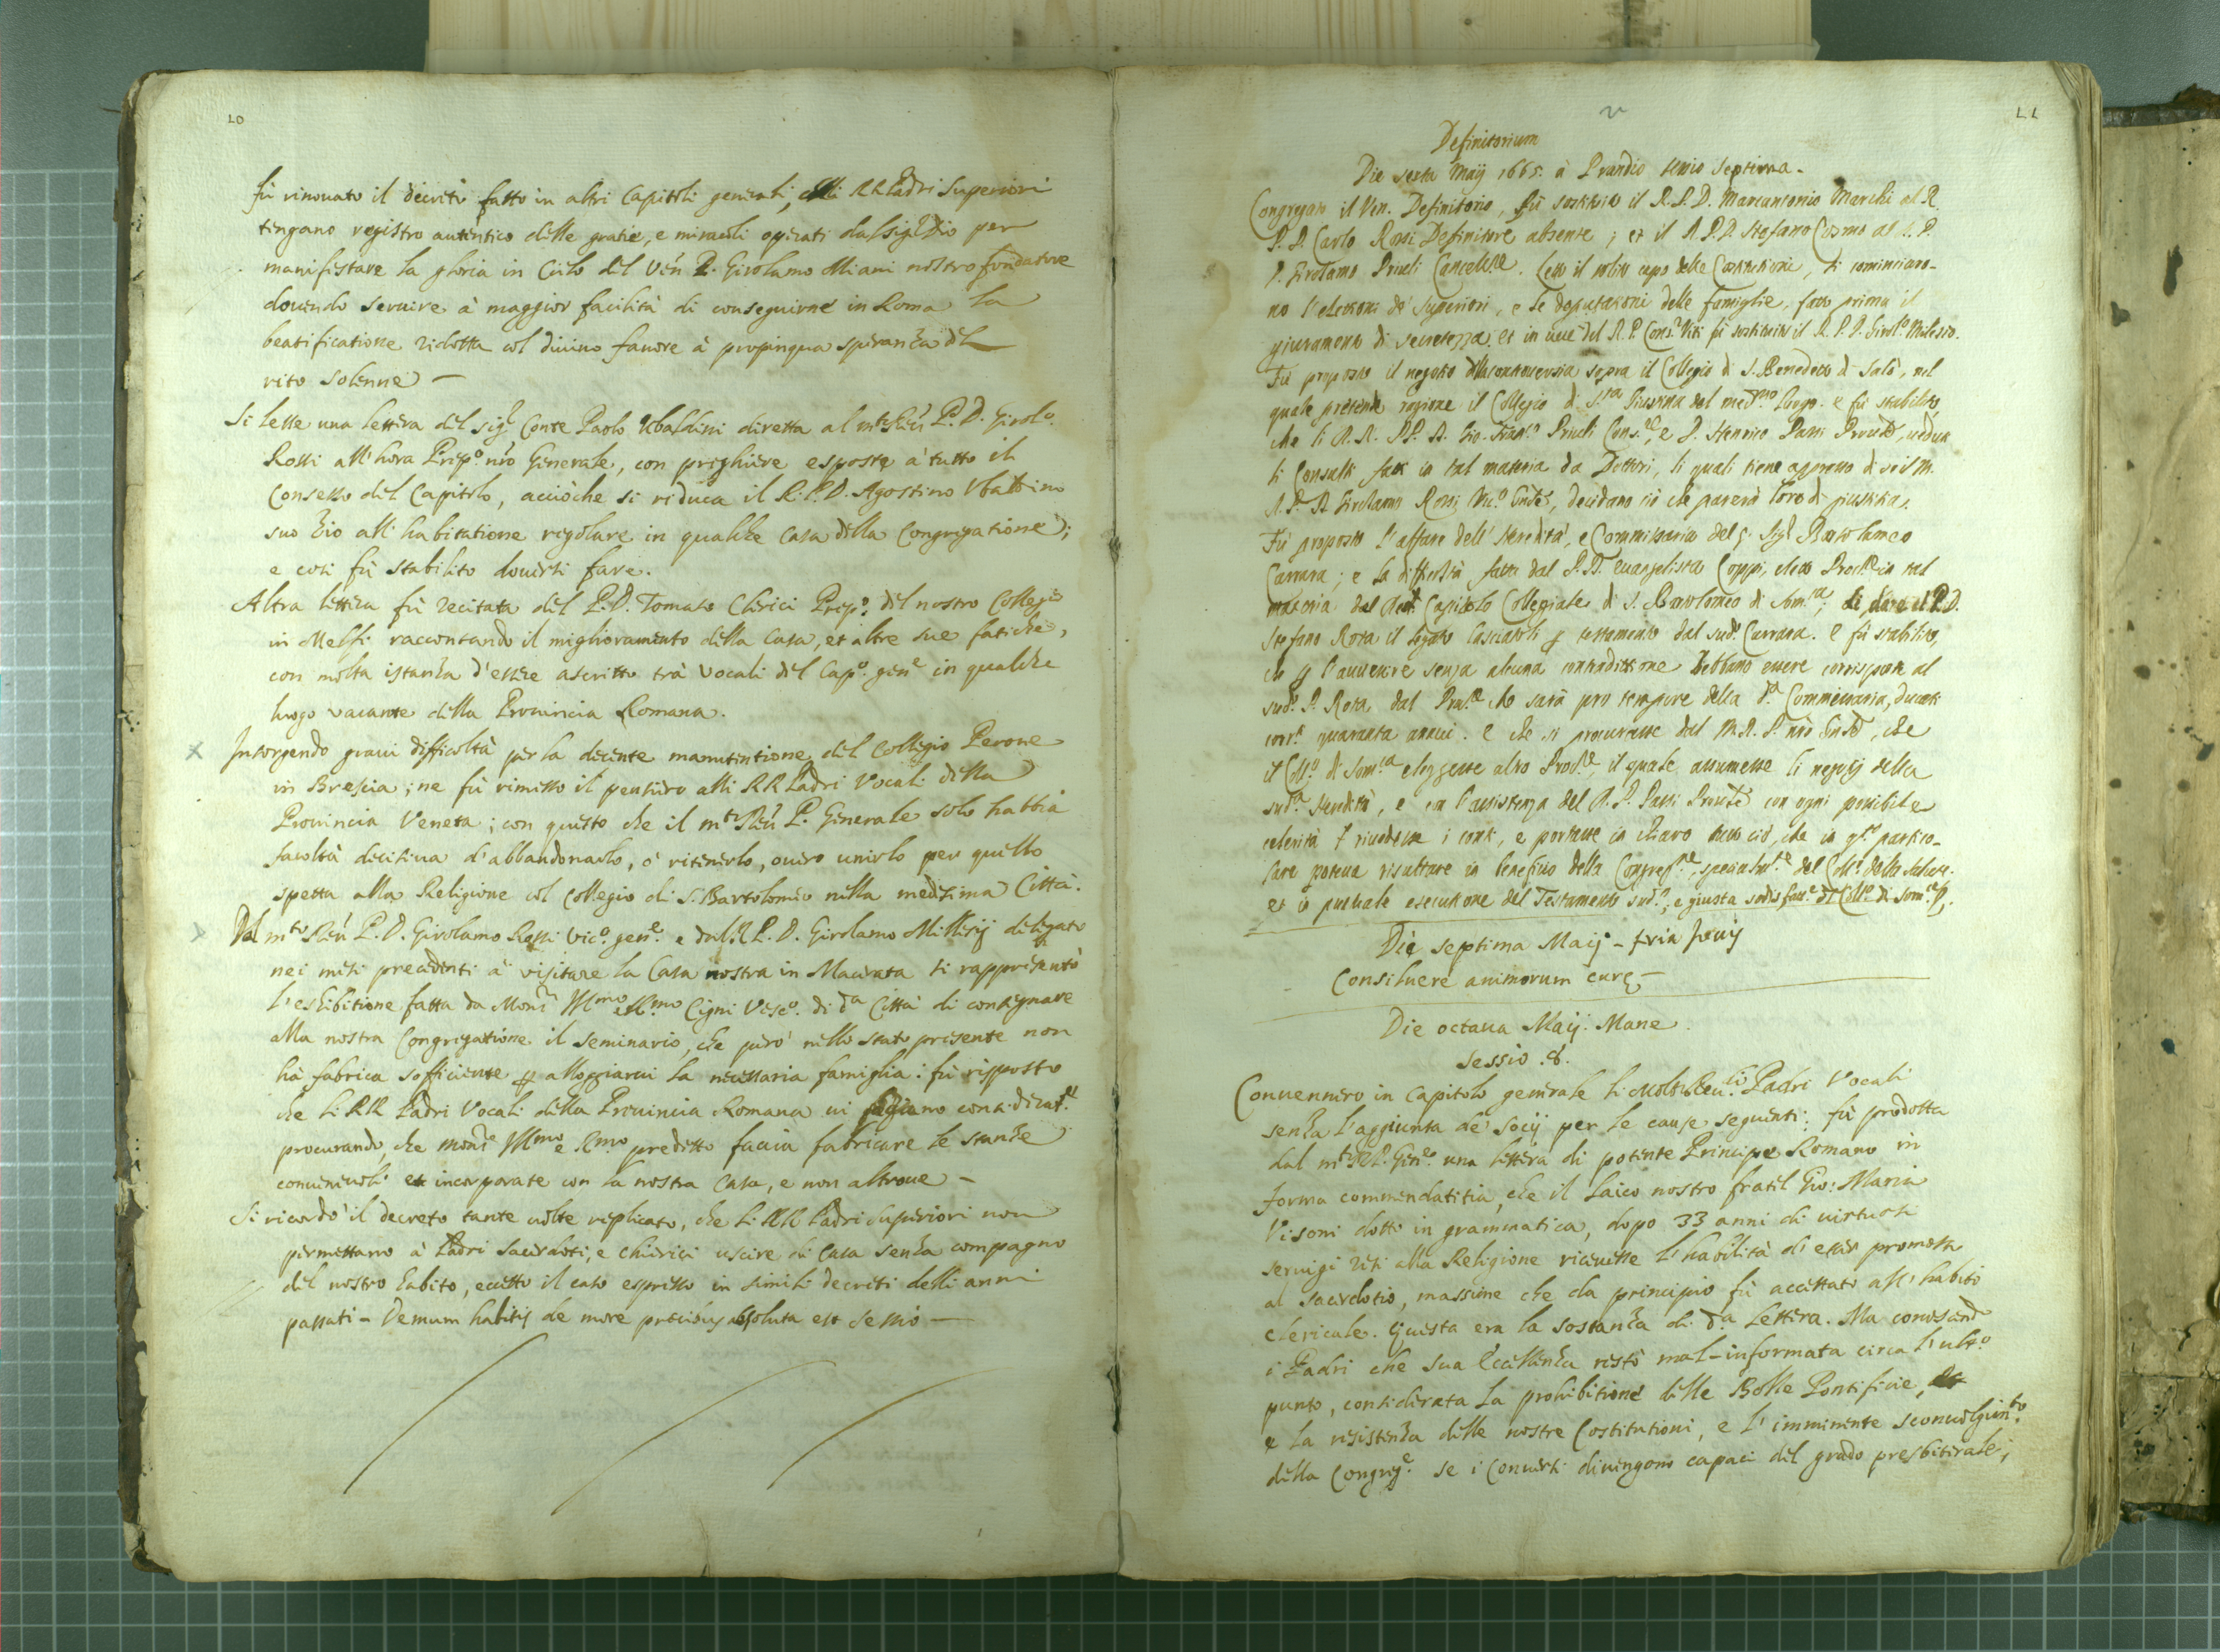 10
fù rinouato il decreto fatto in altri Capitoli generali, che li RR Padri Superiori
tengano registro autentico delle gratie, e miracoli operati dal Sig.r Dio per
manifestare la gloria in Cielo del Ven. P. Girolamo Miani nostro fondatore
douendo seruire à maggior facilità di conseguirne in Roma la
beatificatione ridotta col diuino fauore à propinqua speranza del
rito solenne —
Si lesse una lettera del Sig.r Conte Paolo Ubaldini diretta al m.to Reu. P. D. Girol.o
Rossi all'hora Prep.o nro Generale, con preghiere esposte a' tutto il
Consesso del Capitolo, acciòche si riduca il R. P. D. Agostino Vbaldino
suo Zio all'habitatione regolare in qualche Casa della Congregatione;
e così fù stabilito douersi fare.
Altra lettera fù recitata del P. D. Tomaso Clerici Prep.o del nostro Collegio
in Melfi raccontando il miglioramento della Casa, et altre sue fatiche,
con molta istanza d'essere ascritto trà Vocali del Cap.o gen.e in qualche
luogo vacante della Prouincia Romana.
Insorgendo graui difficoltà per la decente manutentione del Collegio Perone
in Brescia; ne fù rimesso il pensiero alli RR Padri Vocali della
Prouincia Veneta; con questo che il m.to Reu. P. Generale solo habbia
facoltà decisiua d'abbandonarlo, ò ritenerlo, ouero unirlo per quello
spetta alla Religione col Collegio di S. Bartolomeo nella medesima Città.
Dal m.to Reu. P. D. Girolamo Rossi Vic.o gen.e e dal R. P. D. Girolamo Millesij delegato
nei mesi precedenti à visitare la Casa nostra in Macerata si rappresentò
l'eshibitione fatta da Mons.r Ill.mo e R.mo Cigni Vesc.o di d.a Città di consegnare
alla nostra Congregatione il seminario, che però nello stato presente non
hà fabrica sofficiente p alloggiarui la necessaria famiglia: fù risposto
che li RR Padri Vocali della Prouincia Romana ui considerat.e
procurando, che Mons.r Ill.mo e R.mo predetto faccia fabricare le stanze
conueneuoli et incorporate con la nostra Casa, e non altroue —
Si ricordò il decreto tante uolte replicato, che li RR Padri Superiori non
permettano à Padri Sacerdoti, e Chierici uscire di Casa senza compagno
del nostro habito, eccetto il caso espresso in simili decreti delli anni
passati - Demum habitis de more precibus absoluta est sessio —
11
Definitorium
Die sexta Maij 1665. à Prandio sessio septima.
Congregato il Ven. Definitorio, fù sostituito il R. P. D. Marcantonio Marchi al R.
P. D. Carlo Rossi Definitore absente; et il R. P. D. Stefano Cosmo al R. P.
D. Girolamo Priuli Cancell.re. Letto il solito capo delle Costitutioni, si cominciaro-
no l'elettioni de' Superiori, e le deputationi delle famiglie, fatto prima il
giuramento di secretezza. et in uece del R. P. Cons.r Viti fù sostituito il R. P. D. Girol.o Milesio.
Fù proposto il negotio della controuersia sopra il Collegio di S. Benedetto di Salò, nel
quale pretende ragione il Collegio di S.ta Giustina del med.mo luogo. e fù stabilito,
che li R. R. PP. D. Gio. Fran.co Priuli Cons.re, e D. Henrico Passi Prouīle, uedua
li Consulti fatti in tal materia da Dottori, li quali tiene appresso di se il M.
R. P. D. Girolamo Rossi Vic.o Gnāle, decidano ciò che parerà loro di giustitia.
Fù proposto l'affare dell'Heredità, e Commissaria del q. Sig.r Bartolomeo
Carrara; e la difficoltà fatta dal P. D. Euangelista Coppi, eletto Proc.re in tal
materia dal Capitolo Collegiale di S. Bartolomeo di Som.ca; di dare al P. D.
Stefano Rota il legato lasciatoli p testamento dal sud.o Carrara. E fù stabilito,
che p l'auuenire senza alcuna contradittione debbano essere corrisposti al
sud.o P. Rota, dal Proc.re che sarà pro tempore della d.a Commissaria, Ducati
corr.ti quaranta annui. E che si procurasse dal M. R. P. nrō Gnāle, che
il Coll.o di Som.ca eleggesse altro Proc.re, il quale assumesse li negotij della
sud.a Heredità, e con l'assistenza del R. P. Passi Prouīle con ogni possibile
celerità riuedesse i conti, e portasse in chiaro tutto ciò, che in q.to partico-
lare poteua risultare in beneficio della Congreg.ne, specialm.te del Coll.o della Salute.
et in puntuale esecutione del Testamento sud.o, e giusta sodisfatt.e del Coll.o di Som.ca
Die septima Maij - feria
Consiluere animorum curę —
Die octaua Maij. Mane.
sessio .8.
Conuennero in Capitolo generale li Molto Reu.di Padri Vocali
senza l'aggiunta de' Socij per le cause seguenti: fù prodotta
dal m.to R. P. Gen.e una lettera di potente Principe Romano in
forma commendatitia, che il Laico nostro fratel Gio: Maria
Visoni dotto in grammatica, dopo 33 anni di uirtuosi
seruigi resi alla Religione riceuesse l'habilità d'esser promosso
al sacerdotio, massime che da principio fù accettato all'habito
clericale. Questa era la sostanza di d.a lettera. Ma conoscendo
i Padri che sua Eccellenza restò mal-informata circa l'ult.o
punto, considerata la prohibitione delle Bolle Pontificie,
e la resistenza delle nostre Costitutioni, e l'imminente sconuolgim.to
della Congreg.e se i Conuersi diuengono capaci del grado presbiterale;